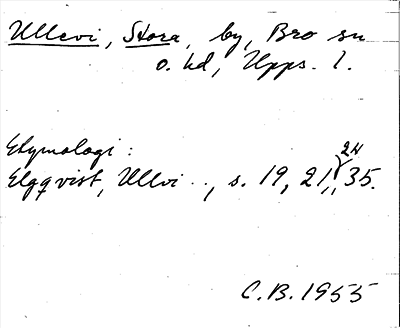 Ullevi, Stora, by, Bro sn
o. hd, Upps. l.
Etymologi:
Elgqvist, Ullvi.., s. 19, 21, 24, 35.
C.B. 1955